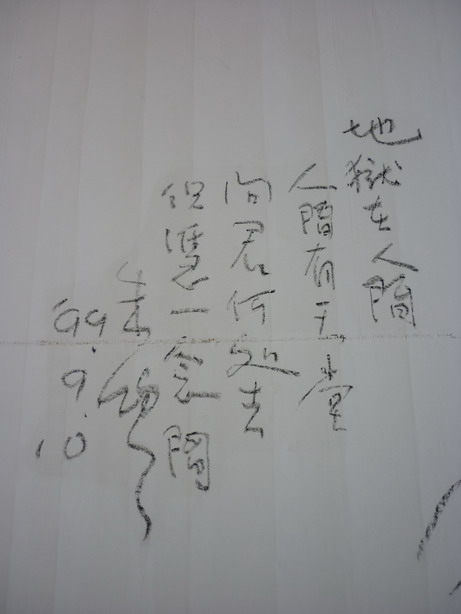 地獄在人間
人間有天堂
問君何处去
但憑一念間
'99.9.10